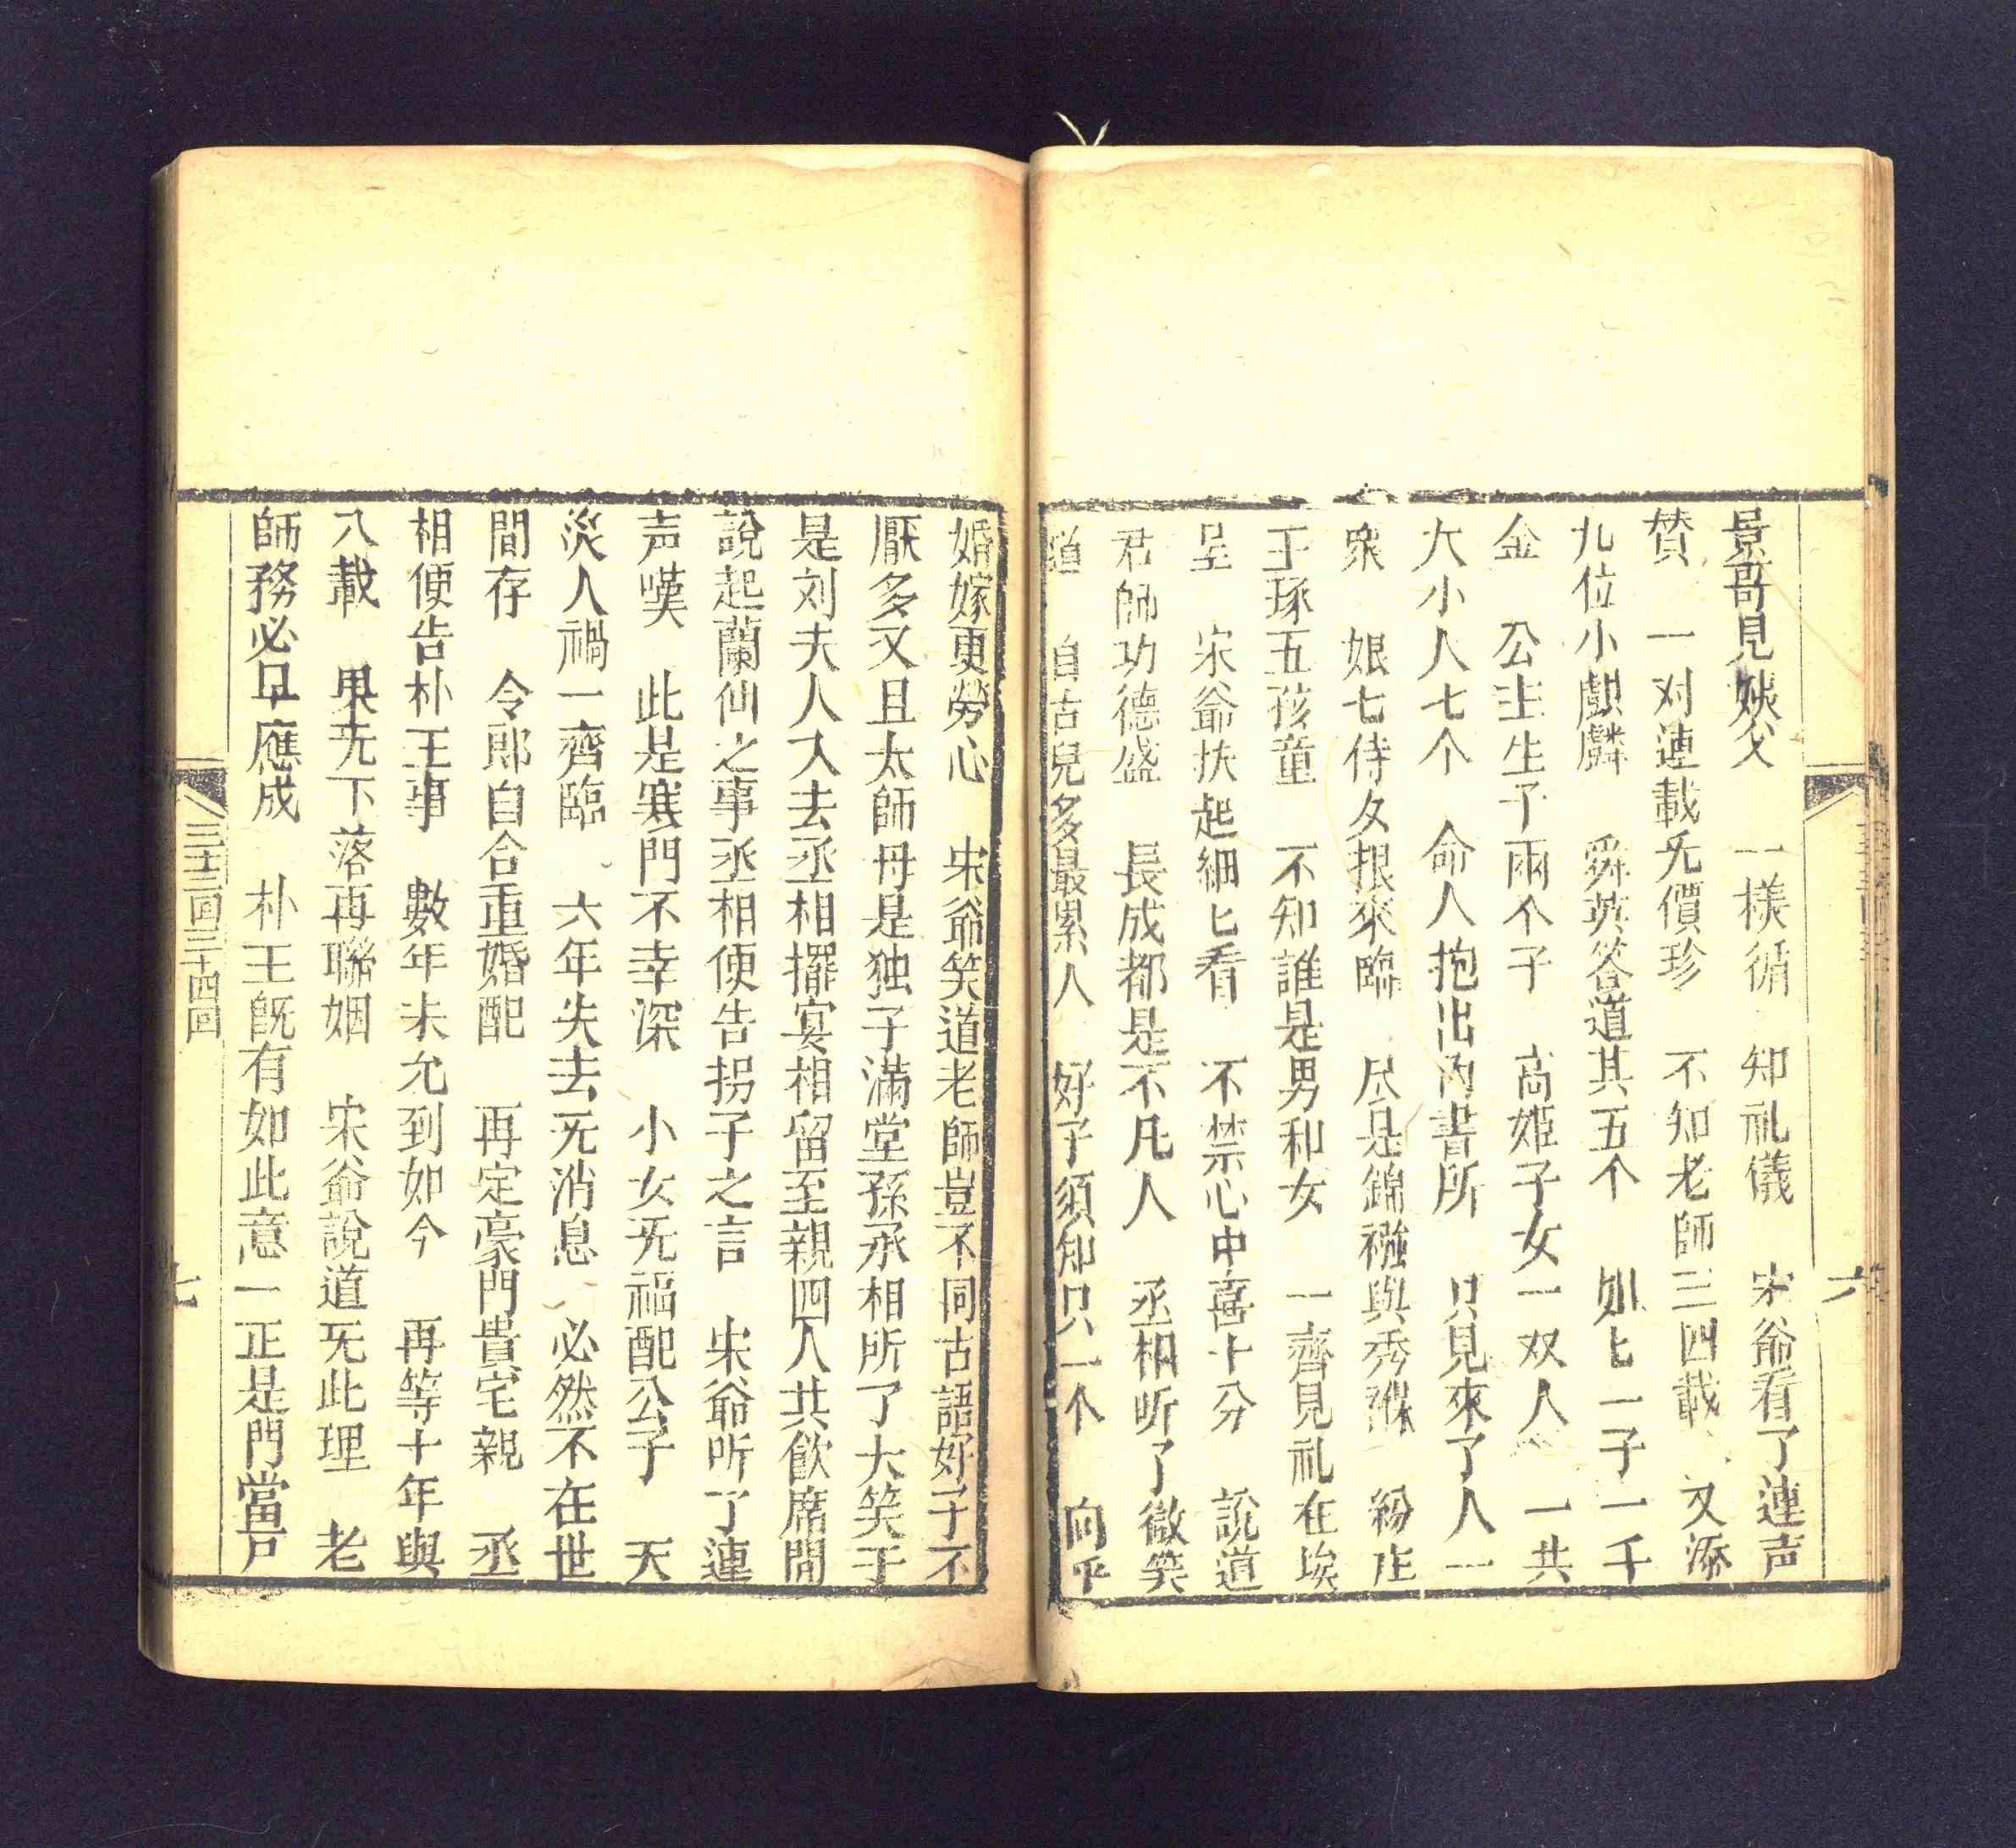 景哥見姨父　一樣循　知礼儀　宋爺看了連声
賛　一对連載旡價珍　不知老師三四載　又添
九位小麒麟　舜英答道其五个　如匕一子一千
金　公主生子兩个子　高姬子女一双人　一共
大小人七个　命人抱出內書所　只見來了人一
衆　娘七侍女抱來臨　尽是錦襁與秀褓　粉庄
玉琢五孩童　不知誰是男和女　一齊見礼在埃
呈　宋爺扶起細匕看　不禁心中喜十分　說道
君師功德盛　長成都是不凡人　丞相听了微笑
道　自古兒多最累人　好子須知只一个　向平
婚嫁更勞心　宋爺笑道老師豈不同古語好子不
厭多又且太師母是独子滿堂孫承相所了大笑于
是刘夫人入去丞相擺宴相留至親四人共飲席間
說起蘭仙之事丞相便告拐子之言　宋爺所了連
声嘆　此是寒門不幸深　小女旡福配公子　天
災人禍一齊臨　六年失去旡消息　必然不在世
間存　令郎自合重婚配　再定豪門貴宅親　丞
相便告朴王事　數年未允到如今　再等十年與
八載　果旡下落再聯姻　宋爺說道旡此理　老
師務必早應成　朴王旣有如此意一正是門當戶
三十三回三十四回
七
六